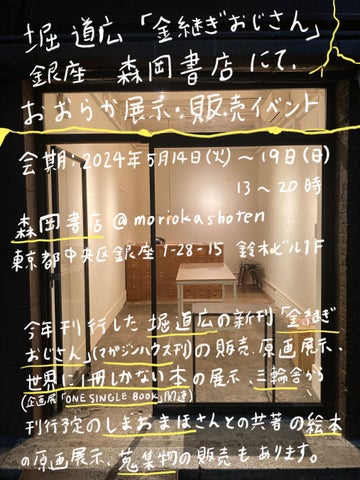 堀 道広 「金継ぎおじさん」
銀座 森岡書店 にて.
おおらか展示・販売イベント
会期:2024年5月14日(火)~19日(日)
13~20時
森岡書店@moriokashoten
東京都中央区銀座1-28-15 鈴木ビル1F
今年刊行した 堀道広の新刊「金継ぎ
おじさん」(マガジンハウス刊)の販売、原画展示、
世界に1冊しかない本の展示、三輪舎から
(企画展「ONE SINGLE BOOK」関連)
刊行予定のしまおまほさんとの共著の絵本
の原画展示、蒐集物の販売もあります。